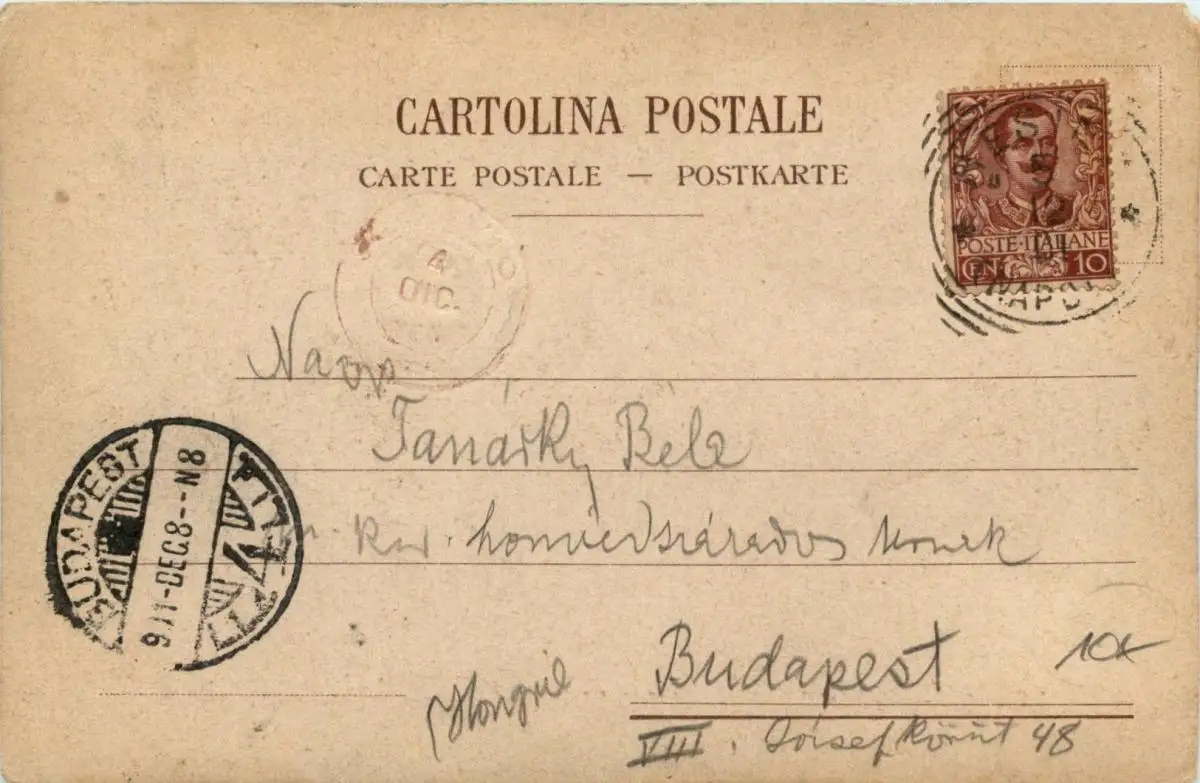 CARTOLINA POSTALE
CARTE POSTALE — POSTKARTE
POSTE·ITALIANE
CENT. 10
4
DIC.
Nagys
Tanárky Béla
honvédszázados Urnak
BUDAPEST
911-DEC.8--N8
4
Budapest
10x
(Hongrie
VIII. Józsefkörút 48